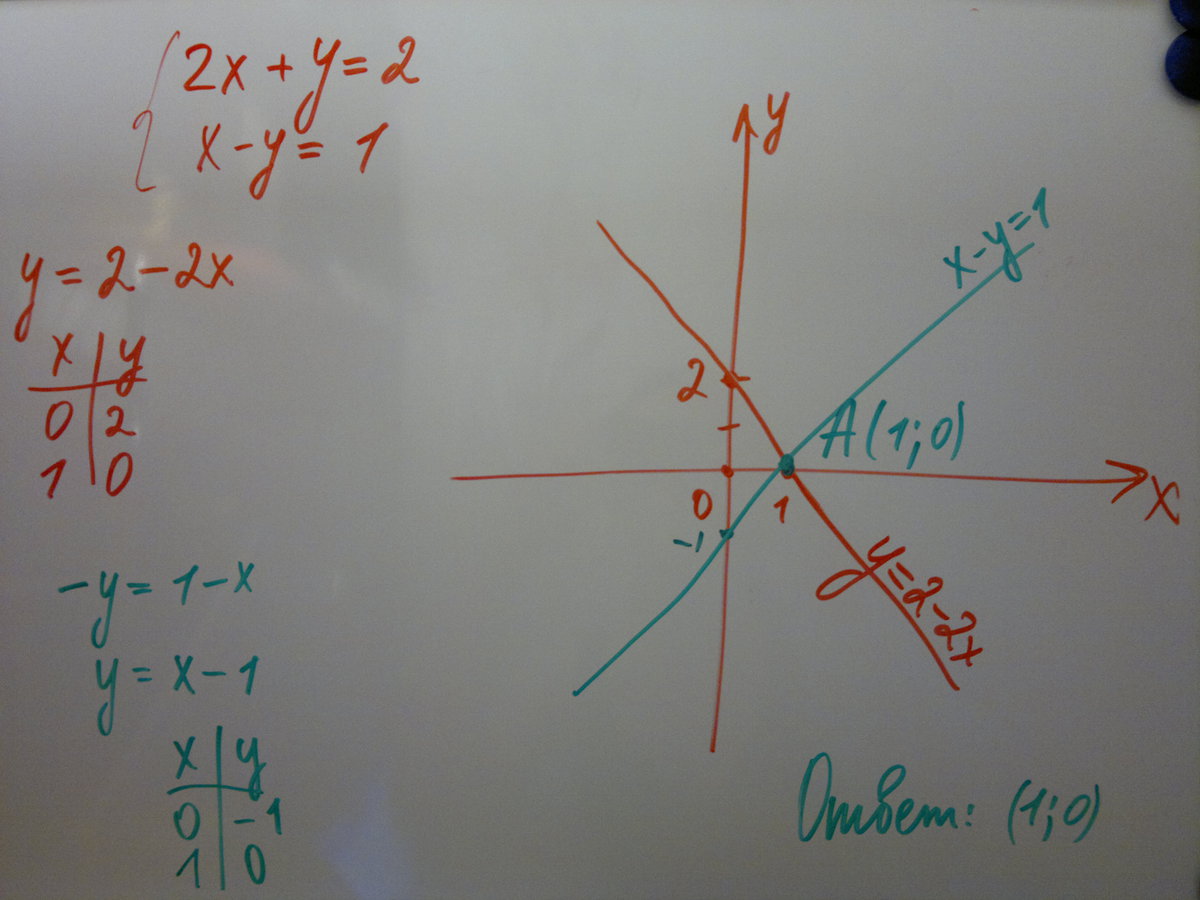 2x + y = 2
x - y = 1
y = 2 - 2x
x | y
0 | 2
1 | 0
-y = 1 - x
y = x - 1
x | y
0 | -1
1 | 0
y
x - y = 1
2
A(1;0)
0
1
x
-1
y = 2 - 2x
Ответ: (1;0)